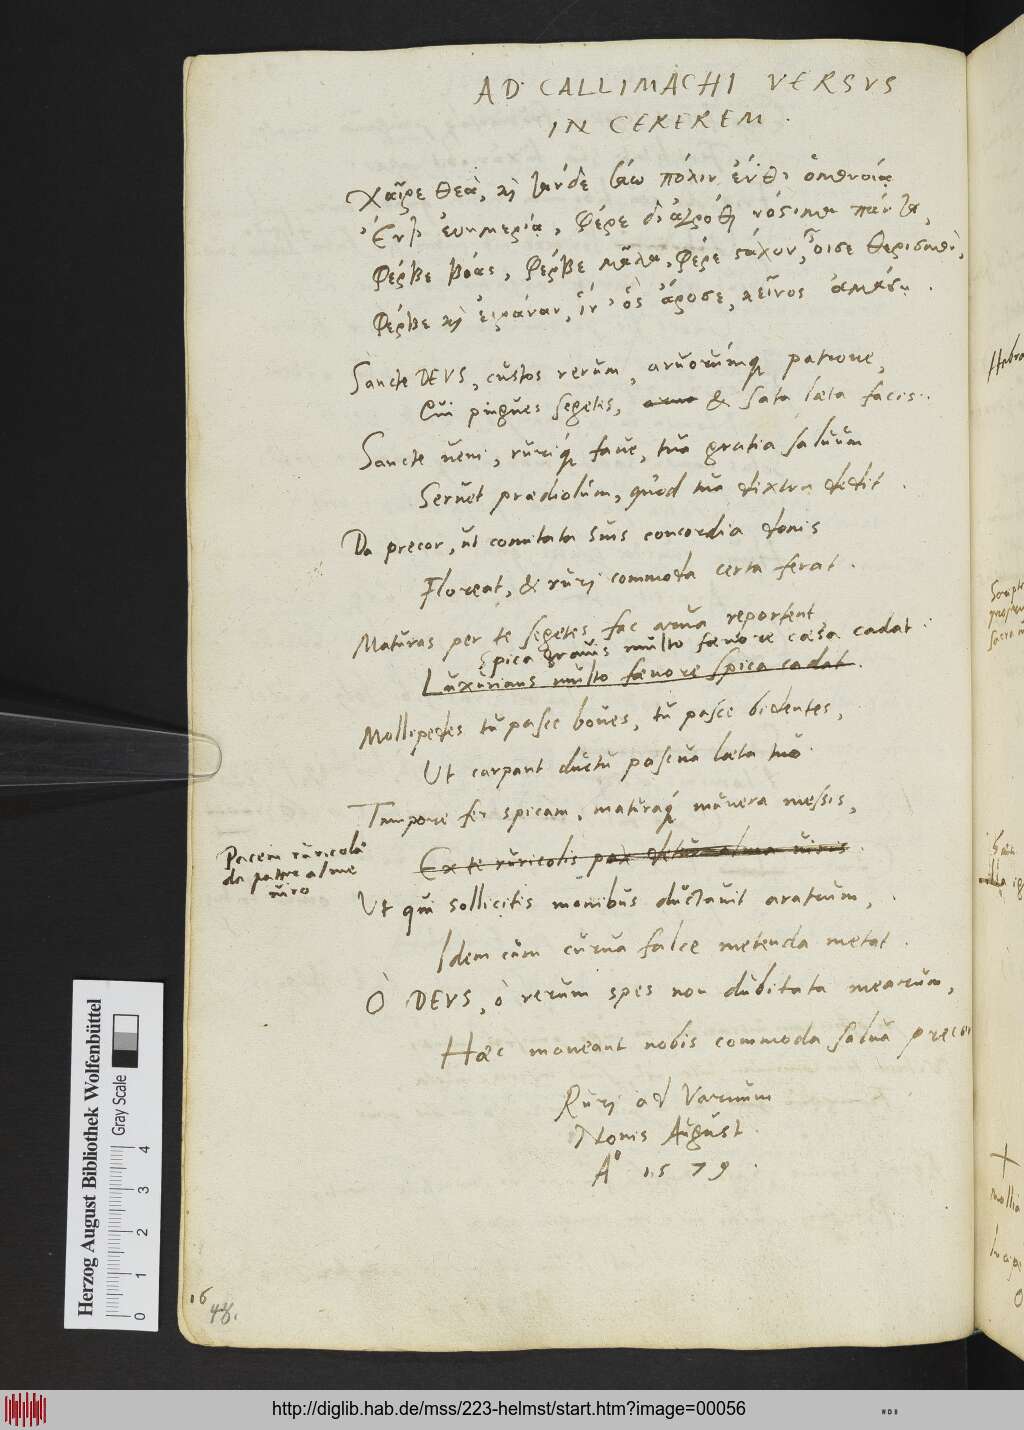 AD CALLIMACHI VERSVS
IN CEREREM.
Χαῖρε θεὰ, καὶ τάνδε σάω πόλιν ἔν θ' ὁμονοίᾳ
Ἔν τ' εὐημερίᾳ, φέρε δ' ἀγρόθι νόστιμα πάντα,
Φέρβε βόας, φέρβε μᾶλα, φέρε στάχυν, οἶσε θερισμὸν,
Φέρβε καὶ εἰράναν, ἵν' ὃς ἄροσε, κεῖνος ἀμάσῃ.
Sancte DEVS, custos rerum, aruorumq́; patrone,
Cui pingues segetes, & sata læta faces.
Sancte ueni, ruriq́; faue, tua gratia saluum
Seruet prædiolum, quod tua dextra dedit.
Da precor, ut comitata suis concordia donis
Floreat, & ruri commoda certa ferat.
Maturas per te segetes fac arua reportent
Spica grauis multo fænore cæsa cadat.
Luxurians multo fænore spica cadat.
Mollipedes tu pasce boues, tu pasce bidentes,
Ut carpant ductu pascua læta tuo.
Tempore fer spicam, maturaq́; munera messis,
Pacem ruricolæ
da pater alme
uiro
Ex te ruricolis pax detur alma uiris.
Ut qui sollicitis manibus ductauit aratrum,
Idem cum curua falce metenda metat.
Ò DEVS, ò rerum spes non dubitata mearum,
Hæc moueant nobis commoda salua preces
Ruri ad Varnum
Nonis August.
A° 1579.
16
48.
Herzog August Bibliothek Wolfenbüttel
Gray Scale
0 1 2 3 4
http://diglib.hab.de/mss/223-helmst/start.htm?image=00056